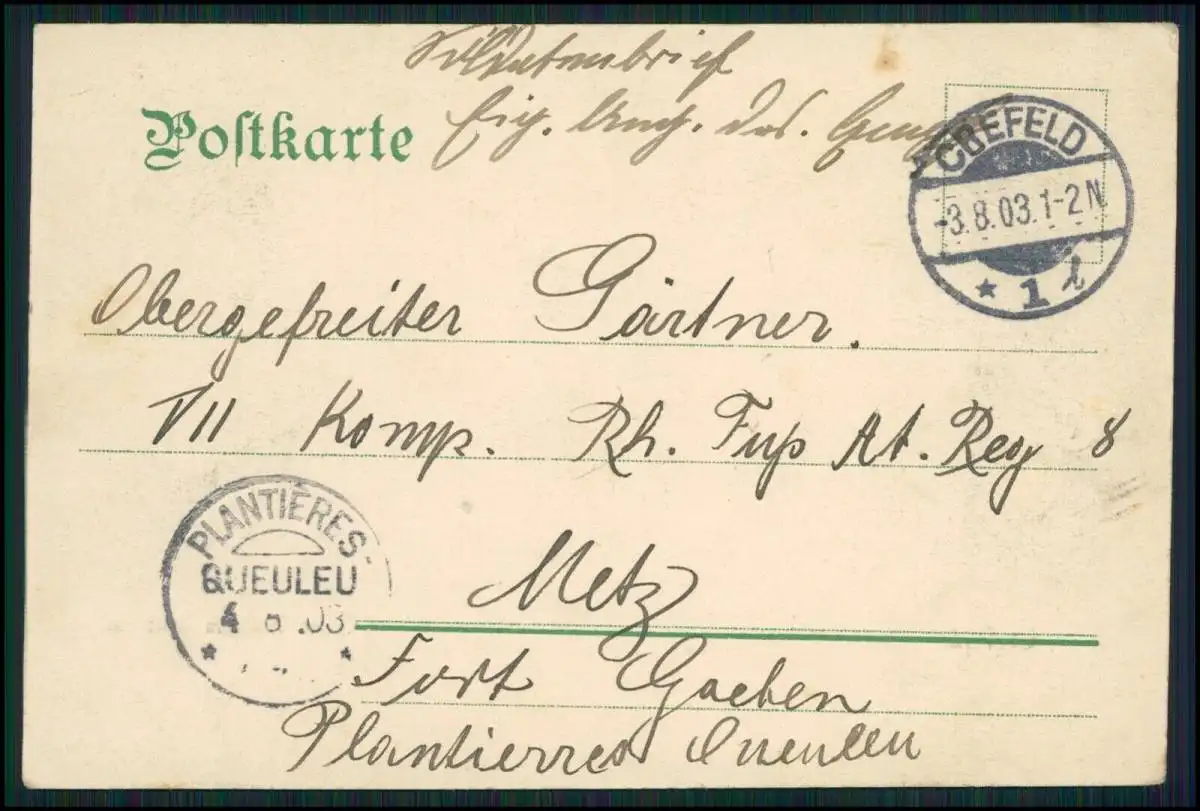 Soldatenbrief
Eig. Ang. des. Empf.
Postkarte
CREFELD
-3.8.03.1-2N
* 1 i
Obergefreiter Gärtner.
VII Komp. Rh. Fuß At. Reg 8
PLANTIERES-
QUEULEU
4 8 .03
Metz
Fort Goeben
Plantierres Queuleu